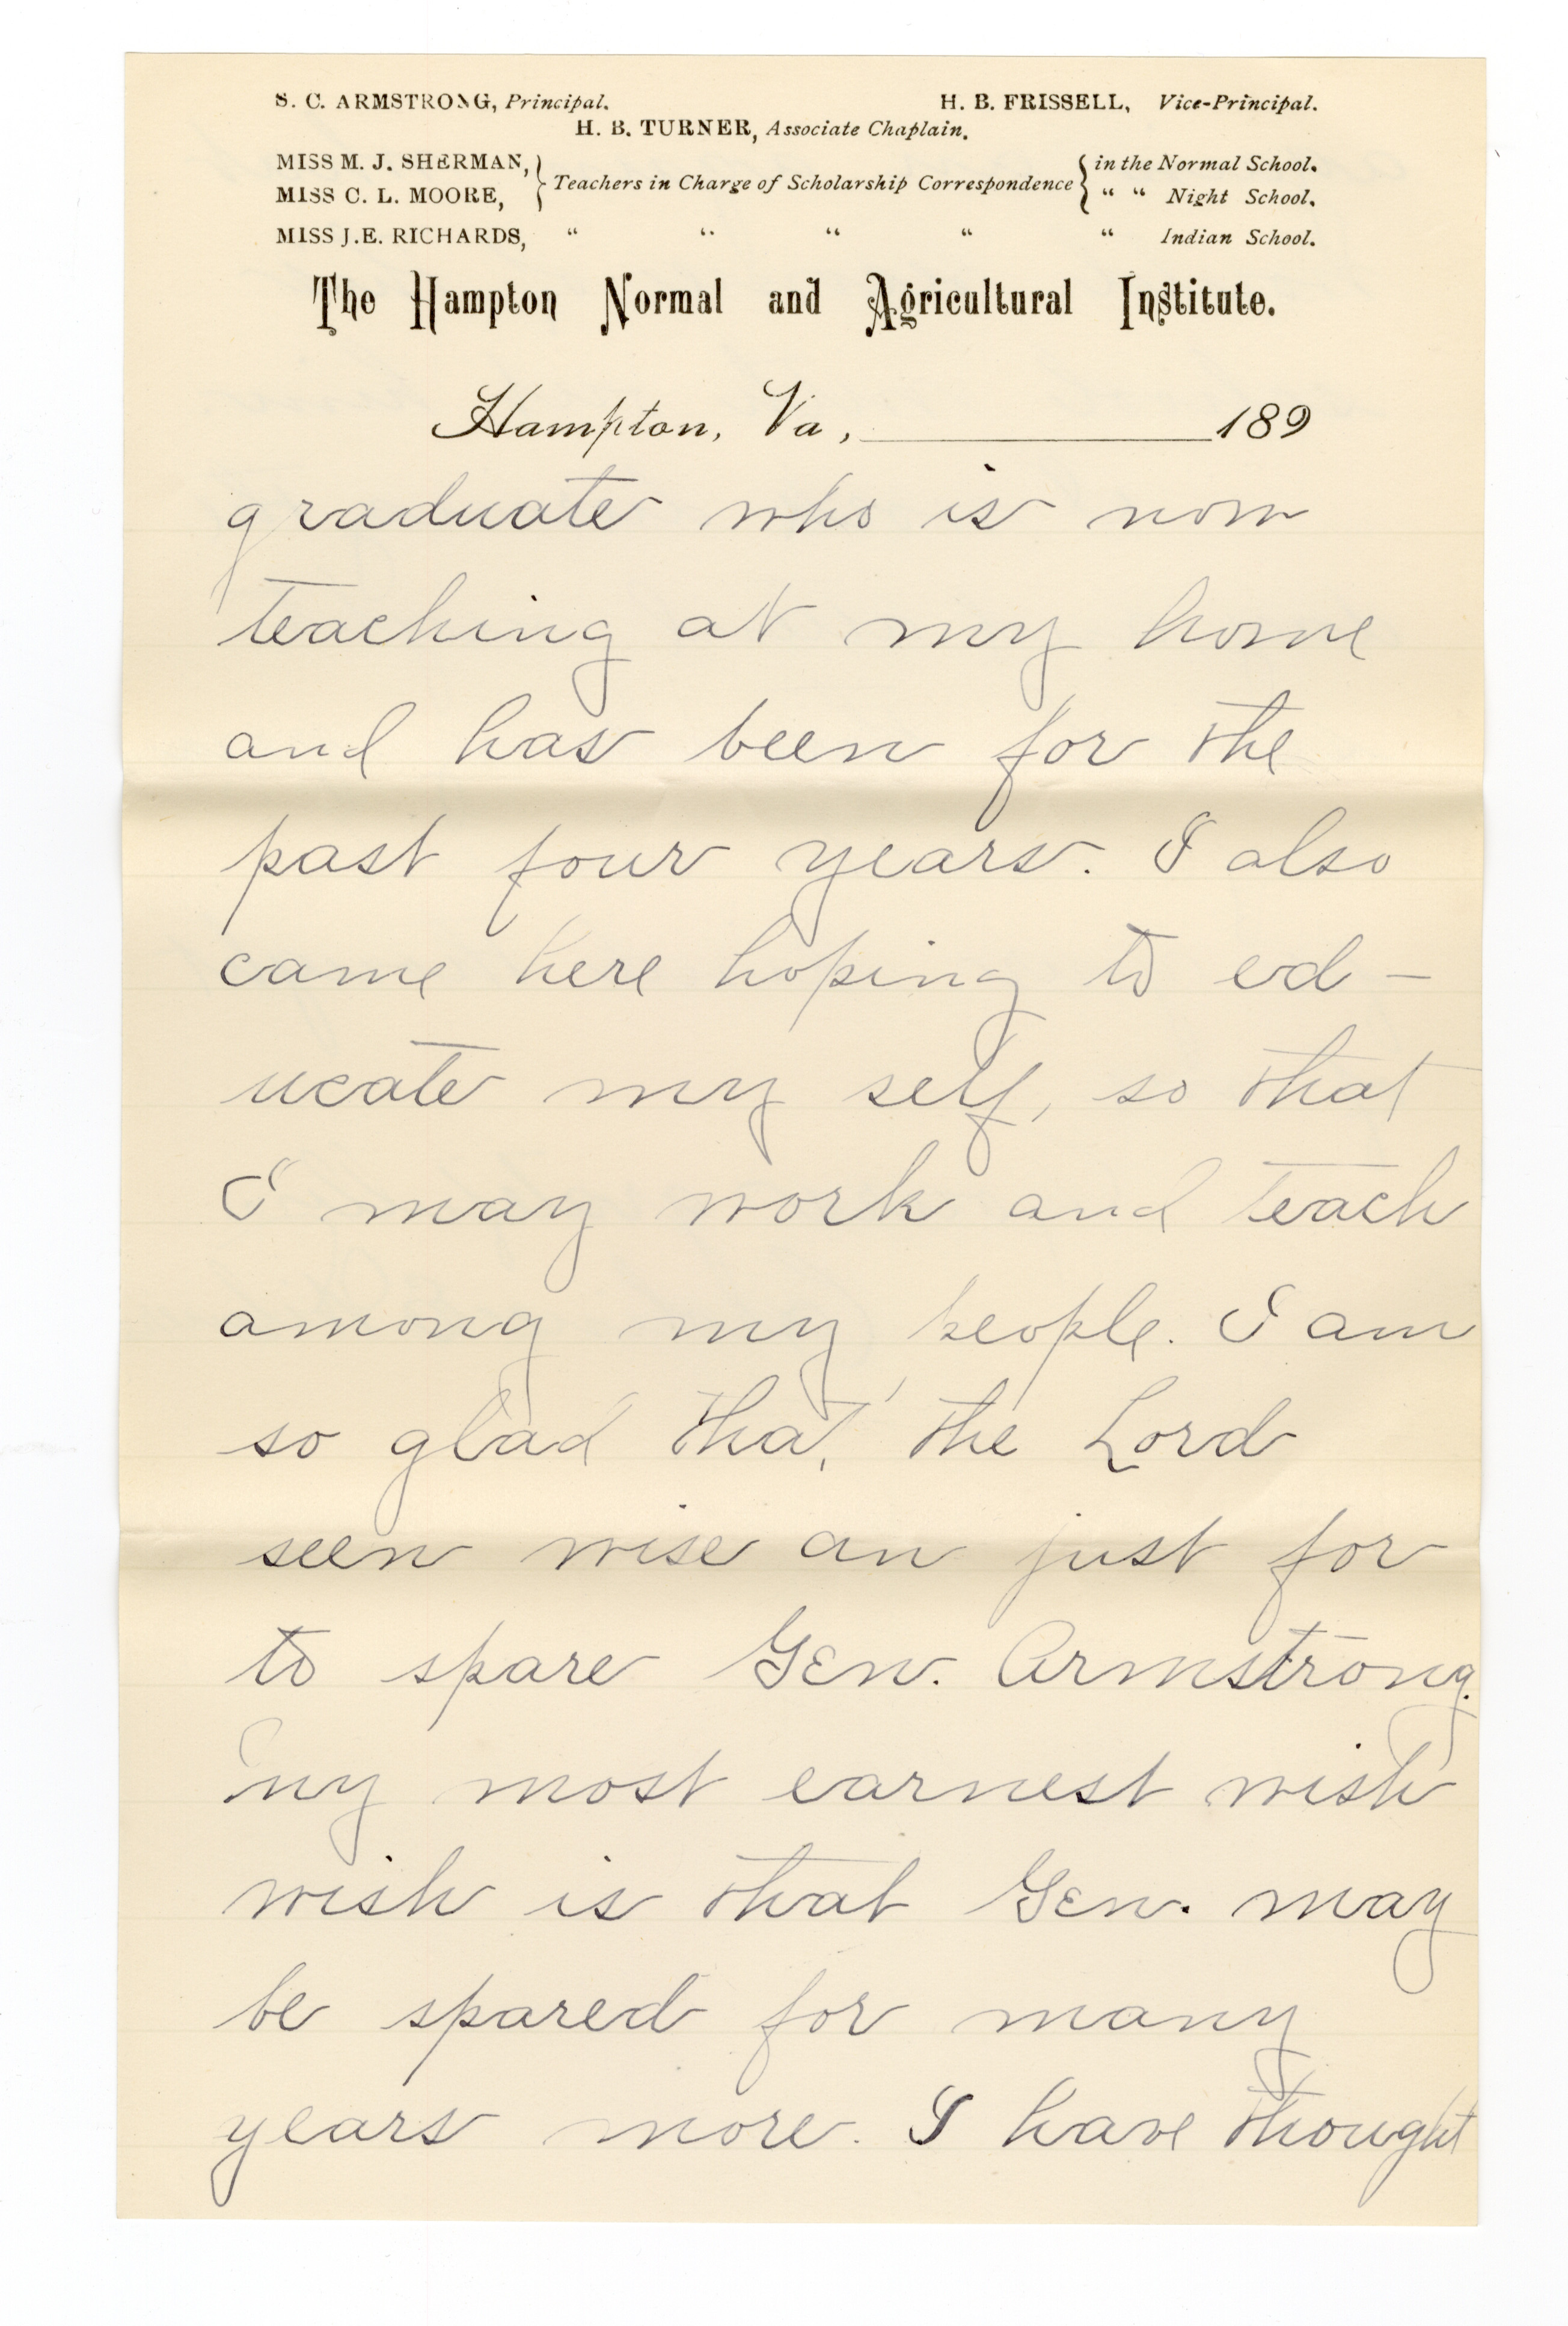 S. C. ARMSTRONG, Principal. H. B. FRISSELL, Vice-Principal.
H. B. TURNER, Associate Chaplain.
MISS M. J. SHERMAN, } Teachers in Charge of Scholarship Correspondence { in the Normal School.
MISS C. L. MOORE, } { " " Night School.
MISS J.E. RICHARDS, " " " " " Indian School.
The Hampton Normal and Agricultural Institute.
Hampton, Va, 189
graduate who is now
teaching at my home
and has been for the
past four years. I also
came here hoping to ed-
ucate my self, so that
I may work and teach
among my people. I am
so glad that, the Lord
seen wise an just for
to spare Gen. Armstrong.
my most earnest wish
wish is that Gen. may
be spared for many
years more. I have thought